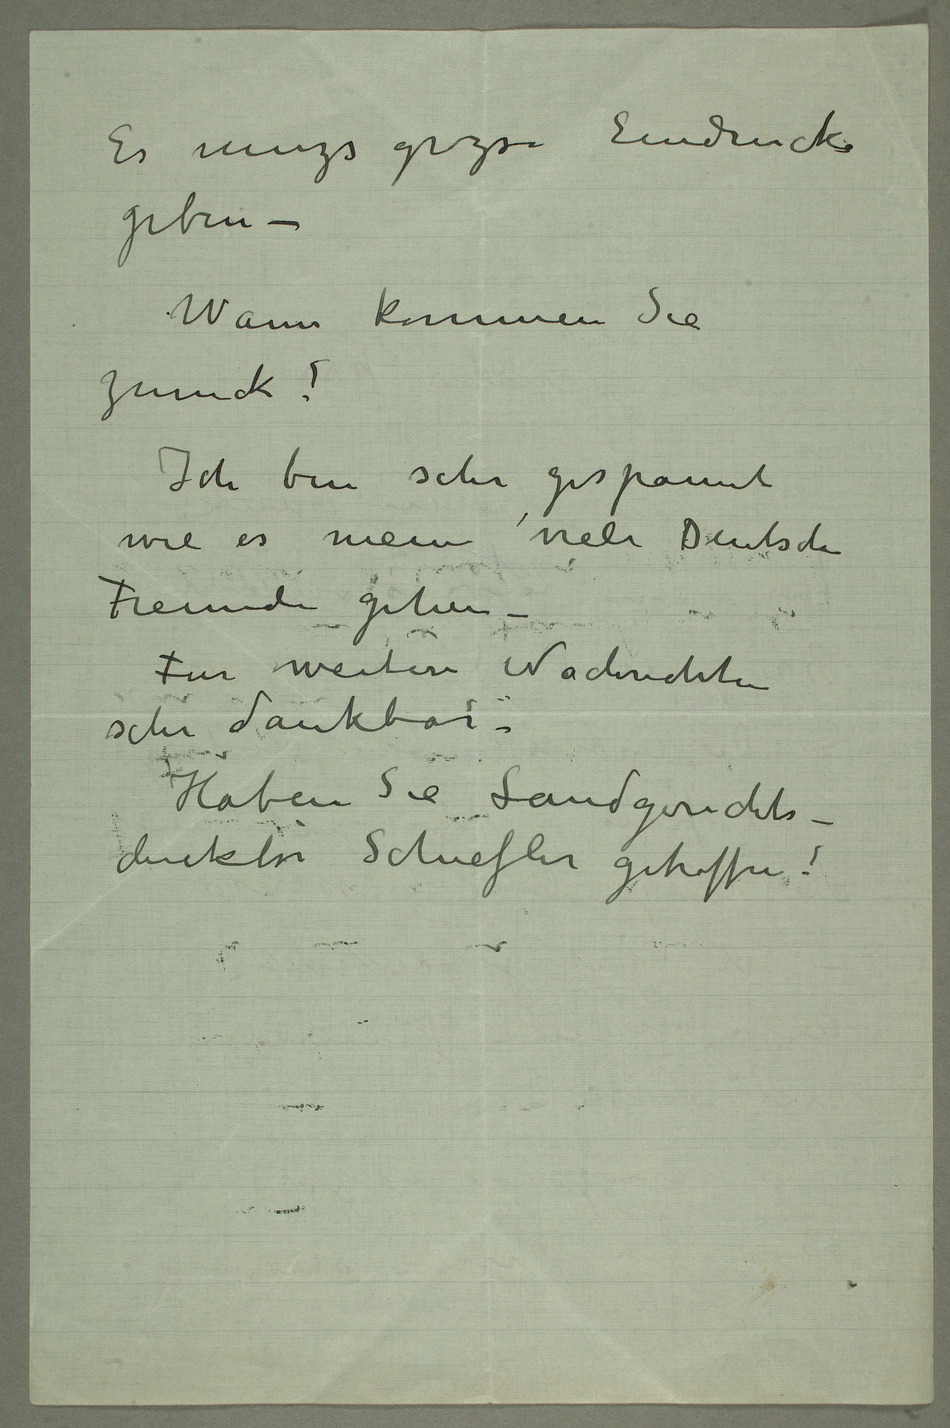 Es muzs grozse Eindrucke
geben –
Wann kommen Sie
zuruck?
Ich bin sehr gespannt
wie es meine viele Deutsche
Freunde gehen –
Fur weitere Nachrichten
sehr dankbar –
Haben Sie Landgerichts–
direktor Schiefler getroffen?